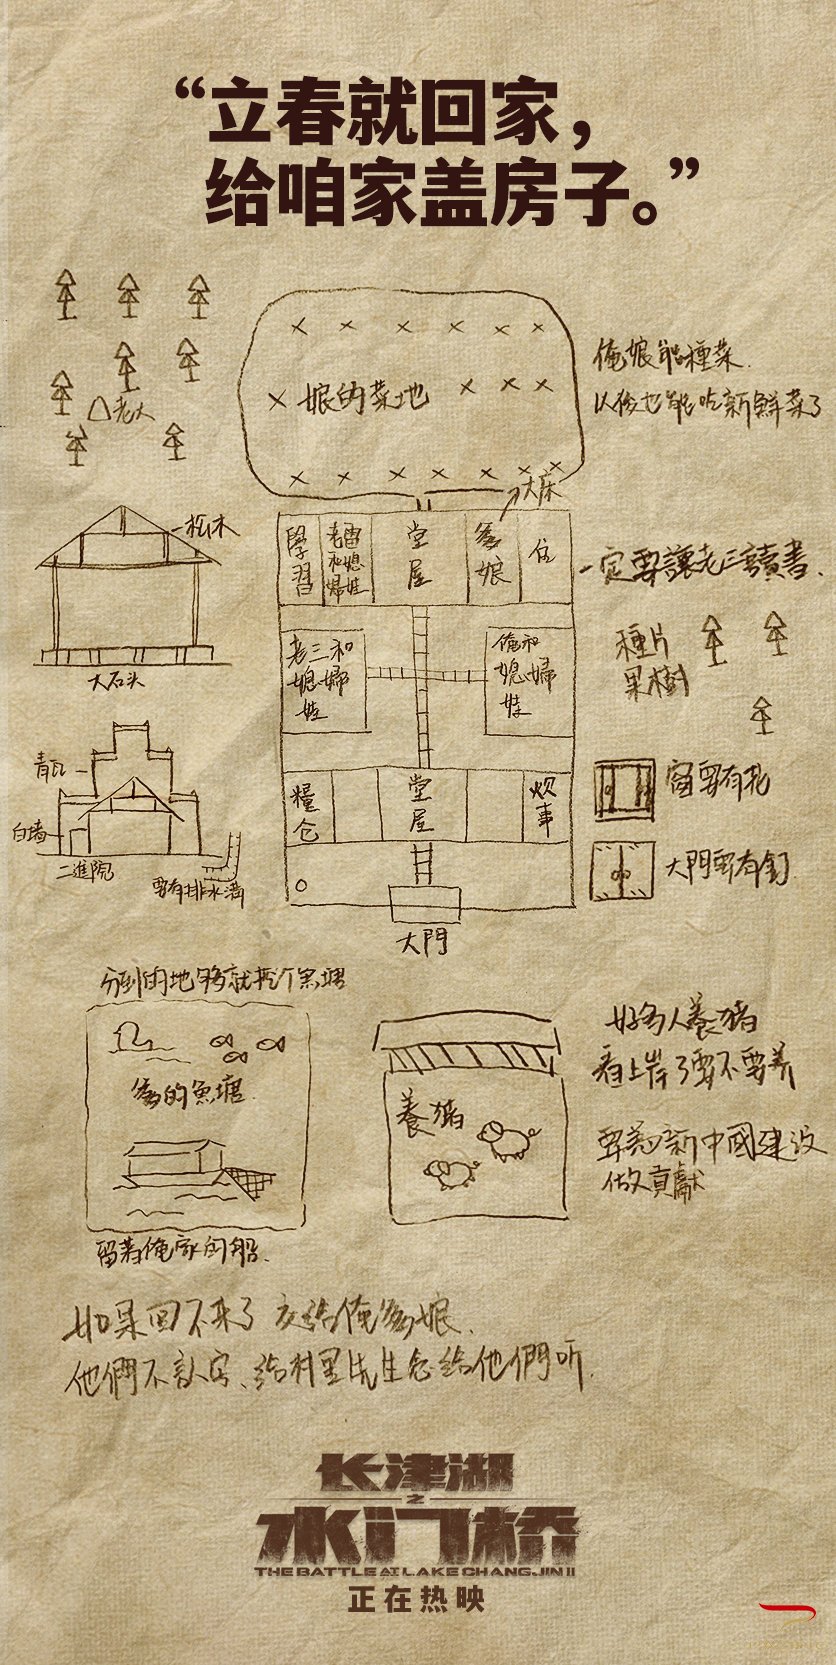 “立春就回家，
给咱家盖房子。”
俺娘能種菜.
以後也能吃新鮮菜了
娘的菜地
老大
大床
松木
大石头
學習
堂屋
爹娘
住
一定要讓老三讀書.
老三和媳婦娃
俺和媳婦娃
種片
果樹
青瓦
白墙
二進院
要有排水溝
糧仓
堂屋
炊事
窗要有花
大門要有釘
大門
分到的地够就挖个魚塘
爹的魚塘
留着俺家的船.
養猪
好多人養猪
看上岸了要不要养
要为新中國建设
做貢獻
如果回不来了 交给俺爹娘.
他們不認字、给村里先生念给他們听.
长津湖
之
水门桥
THE BATTLE AT LAKE CHANGJIN II
正在热映